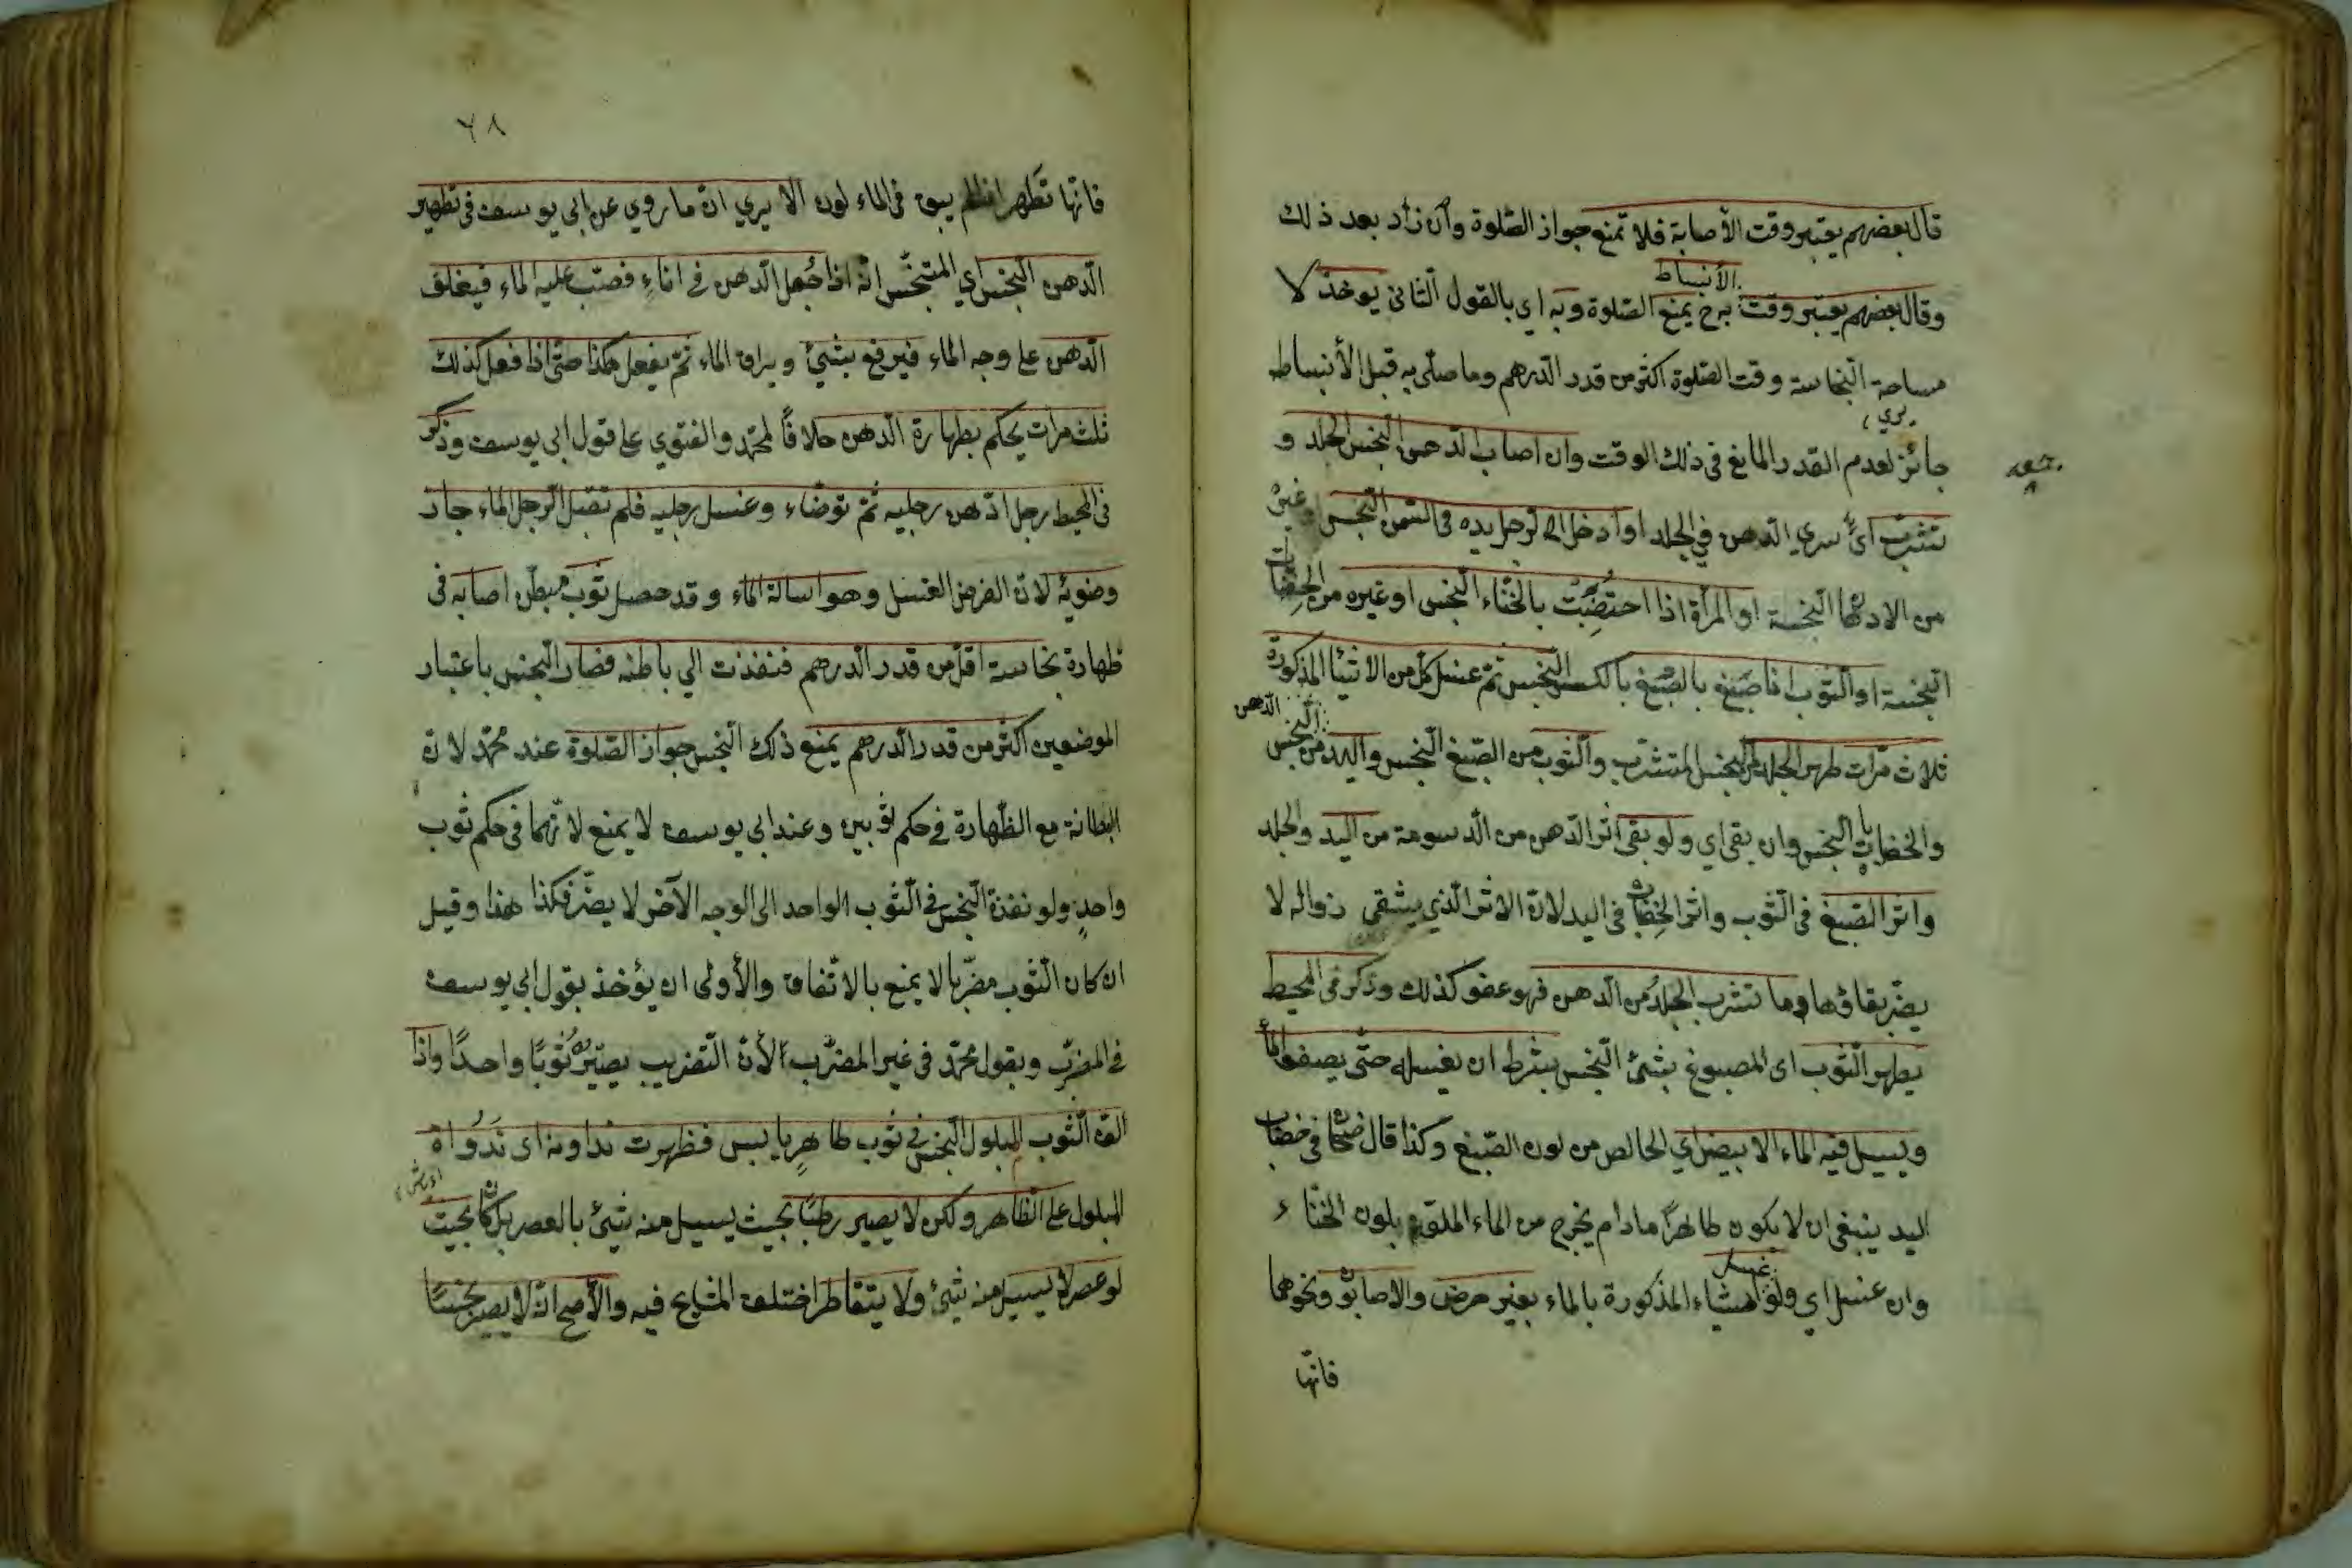 قال بعضهم يعتبر وقت الأصابة فلا تمنع جواز الصّلوة وان زاد بعد ذلك
الأنبساط
وقال بعضهم يعتبر وقت به ح يمنع الصّلوة وبه اي بالقول الثانى يوخذ لا
مساحة النجاسة وقت الصّلوة اكثر من قدر الدرهم وما صلّى به قبل الأنبساط
يري
جائز لعدم القدر المانع فى ذلك الوقت وان اصاب الدّهن النجس الجلد و
تشرّب اىّ سري الدّهن في الجلد او ادخل الرّجل يده فى السّمن النّجس او غيره
من الادهان النّجسة او المرأة اذا اختضبت بالحنّاء النّجس او غيره من الخضابات
النّجسة او الثّوب اذا صبغ بالصّبغ بالنّجس ثمّ غسل كلّ من الاشيا المذكورة
الدّهن
ثلاث مرّات طهر الجلد من النجس المتشرّب والثوب من الصّبغ النّجس واليد من النّجس
والخضاب النجس وان بقى اي ولو بقى اثر الدّهن من الدّسومة من اليد والجلد
واثر الصّبغ فى الثّوب واثر الخضاب فى اليد لانّ الاثر الذي يشقى زواله لا
يضرّ بقاؤها وما تشرب الجلدُ من الدّهن فهو عفو كذلك وذكر فى المحيط
يطهر الثّوب اى المصبوغ بشئ النّجس بشرط ان يغسله حتّى يصفو الماء
ويسيل فيه الماء الابيض اي الخالص من لون الصّبغ وكذا قال فى خضاب
اليد ينبغى ان لا يكون طاهرًا مادام يخرج من الماء الملوّن بلون الحنّاء
غسل
وان غسل اي ولو الاشياء المذكورة بالماء بغير حرض والاصابون ونحوهما
فانّها
٦٨
فانّها تَطهر اذا لم يبق فى الماء لون الا يري انّ ما روي عن ابى يوسف فى تطهير
الدّهن النّجس اي المتنجّس انّه اذا جُعل الدّهن فى اناءٍ فصبّ عليه الماء فيغلف
الدّهن على وجه الماء فيرفع بشئ ويراق الماء ثمّ يفعل هكذا حتّى اذا فعل كذلك
ثلث مرات يحكم بطهارة الدّهن خلافًا لمحمّد والفتوي على قول ابى يوسف وذكر
فى المحيط رجل ادّهن رجليه ثمّ توضّاء وغسل رجليه فلم تقبل الرّجل الماء جاز
وضوئه لانّ الفرض الغسل وهو اسالة الماء وقد حصل ثوب مبطّن اصابه فى
ظهارة نجاسة اقلّ من قدر الدرهم فنفذت الي باطنه فصار النّجس باعتبار
الموضعين اكثر من قدر الدرهم يمنع ذلك النّجس جواز الصّلوة عند محمّد لانّ
البطانة مع الظّهارة فى حكم ثوبين وعند ابى يوسف لا يمنع لانّهما فى حكم ثوب
واحدٍ ولو نفذة النّجس فى الثّوب الواحد الى الوجه الآخر لا يضرّ فكذا هذا وقيل
ان كان الثّوب مضرّبا لا يمنع بالاتّفاق والأولى ان يؤخذ بقول ابى يوسف
فى المضرّب وبقول محمّد فى غير المضرّب لأنّ التّضريب يصيّره ثوبًا واحدًا واذا
القه الثّوب المبلول النّجس فى ثوب طاهرٍ يابس فظهرت نداوته اى نَدُواه
المبلول على الظّاهر ولكن لا يصير رطبًا بحيث يسيل منه شئ بالعصر بل كان بحيث
لو عصر لا يسيل منه شئ ولا يتقاطر اختلف المشايخ فيه والأصح انّه لا يصير نجسًا